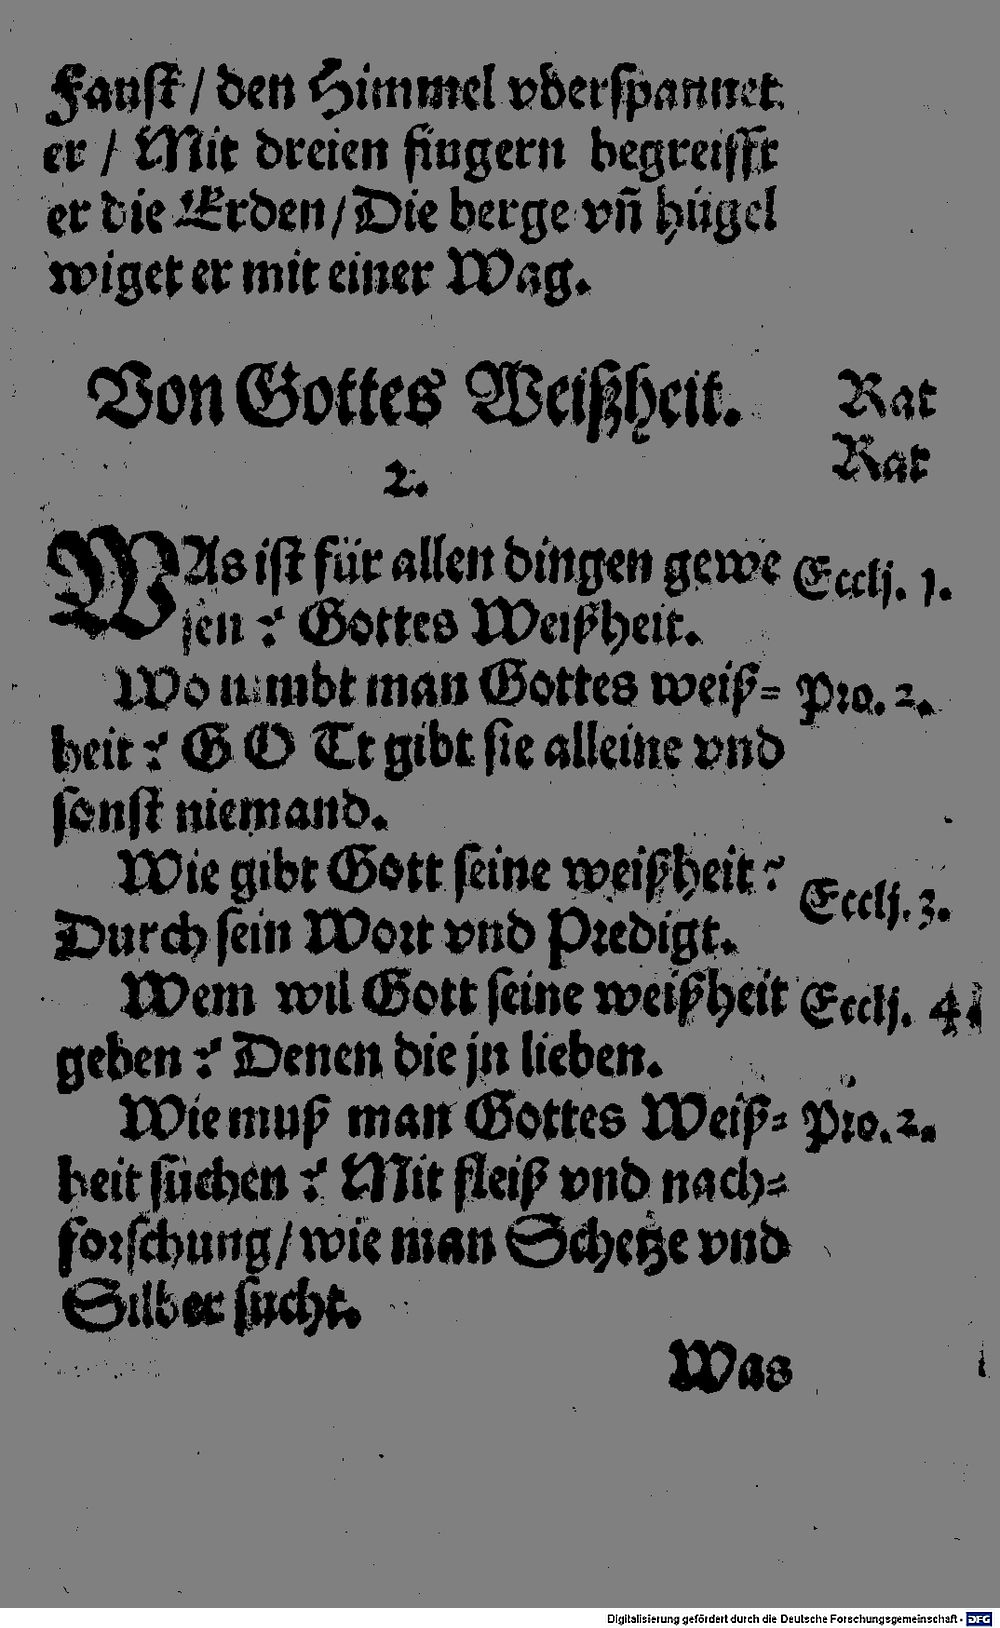 Fauſt / den Himmel vberſpannet
er / Mit dreien fingern begreifft
er die Erden / Die berge vñ hügel
wiget er mit einer Wag.
Von Gottes Weißheit.
Rat
Rat
2.
WAs iſt für allen dingen gewe
ſen ? Gottes Weißheit.
Eccli. 1.
Wo nimbt man Gottes weiß=
Pro. 2.
heit ? GOTt gibt ſie alleine vnd
ſonſt niemand.
Wie gibt Gott ſeine weißheit ?
Eccli. 3.
Durch ſein Wort vnd Predigt.
Wem wil Gott ſeine weißheit
Eccli. 4.
geben ? Denen die jn lieben.
Wie muß man Gottes Weiß=
Pro. 2.
heit ſuchen ? Mit fleiß vnd nach=
forſchung / wie man Schetze vnd
Silber ſucht.
Was
Digitalisierung gefördert durch die Deutsche Forschungsgemeinschaft - DFG